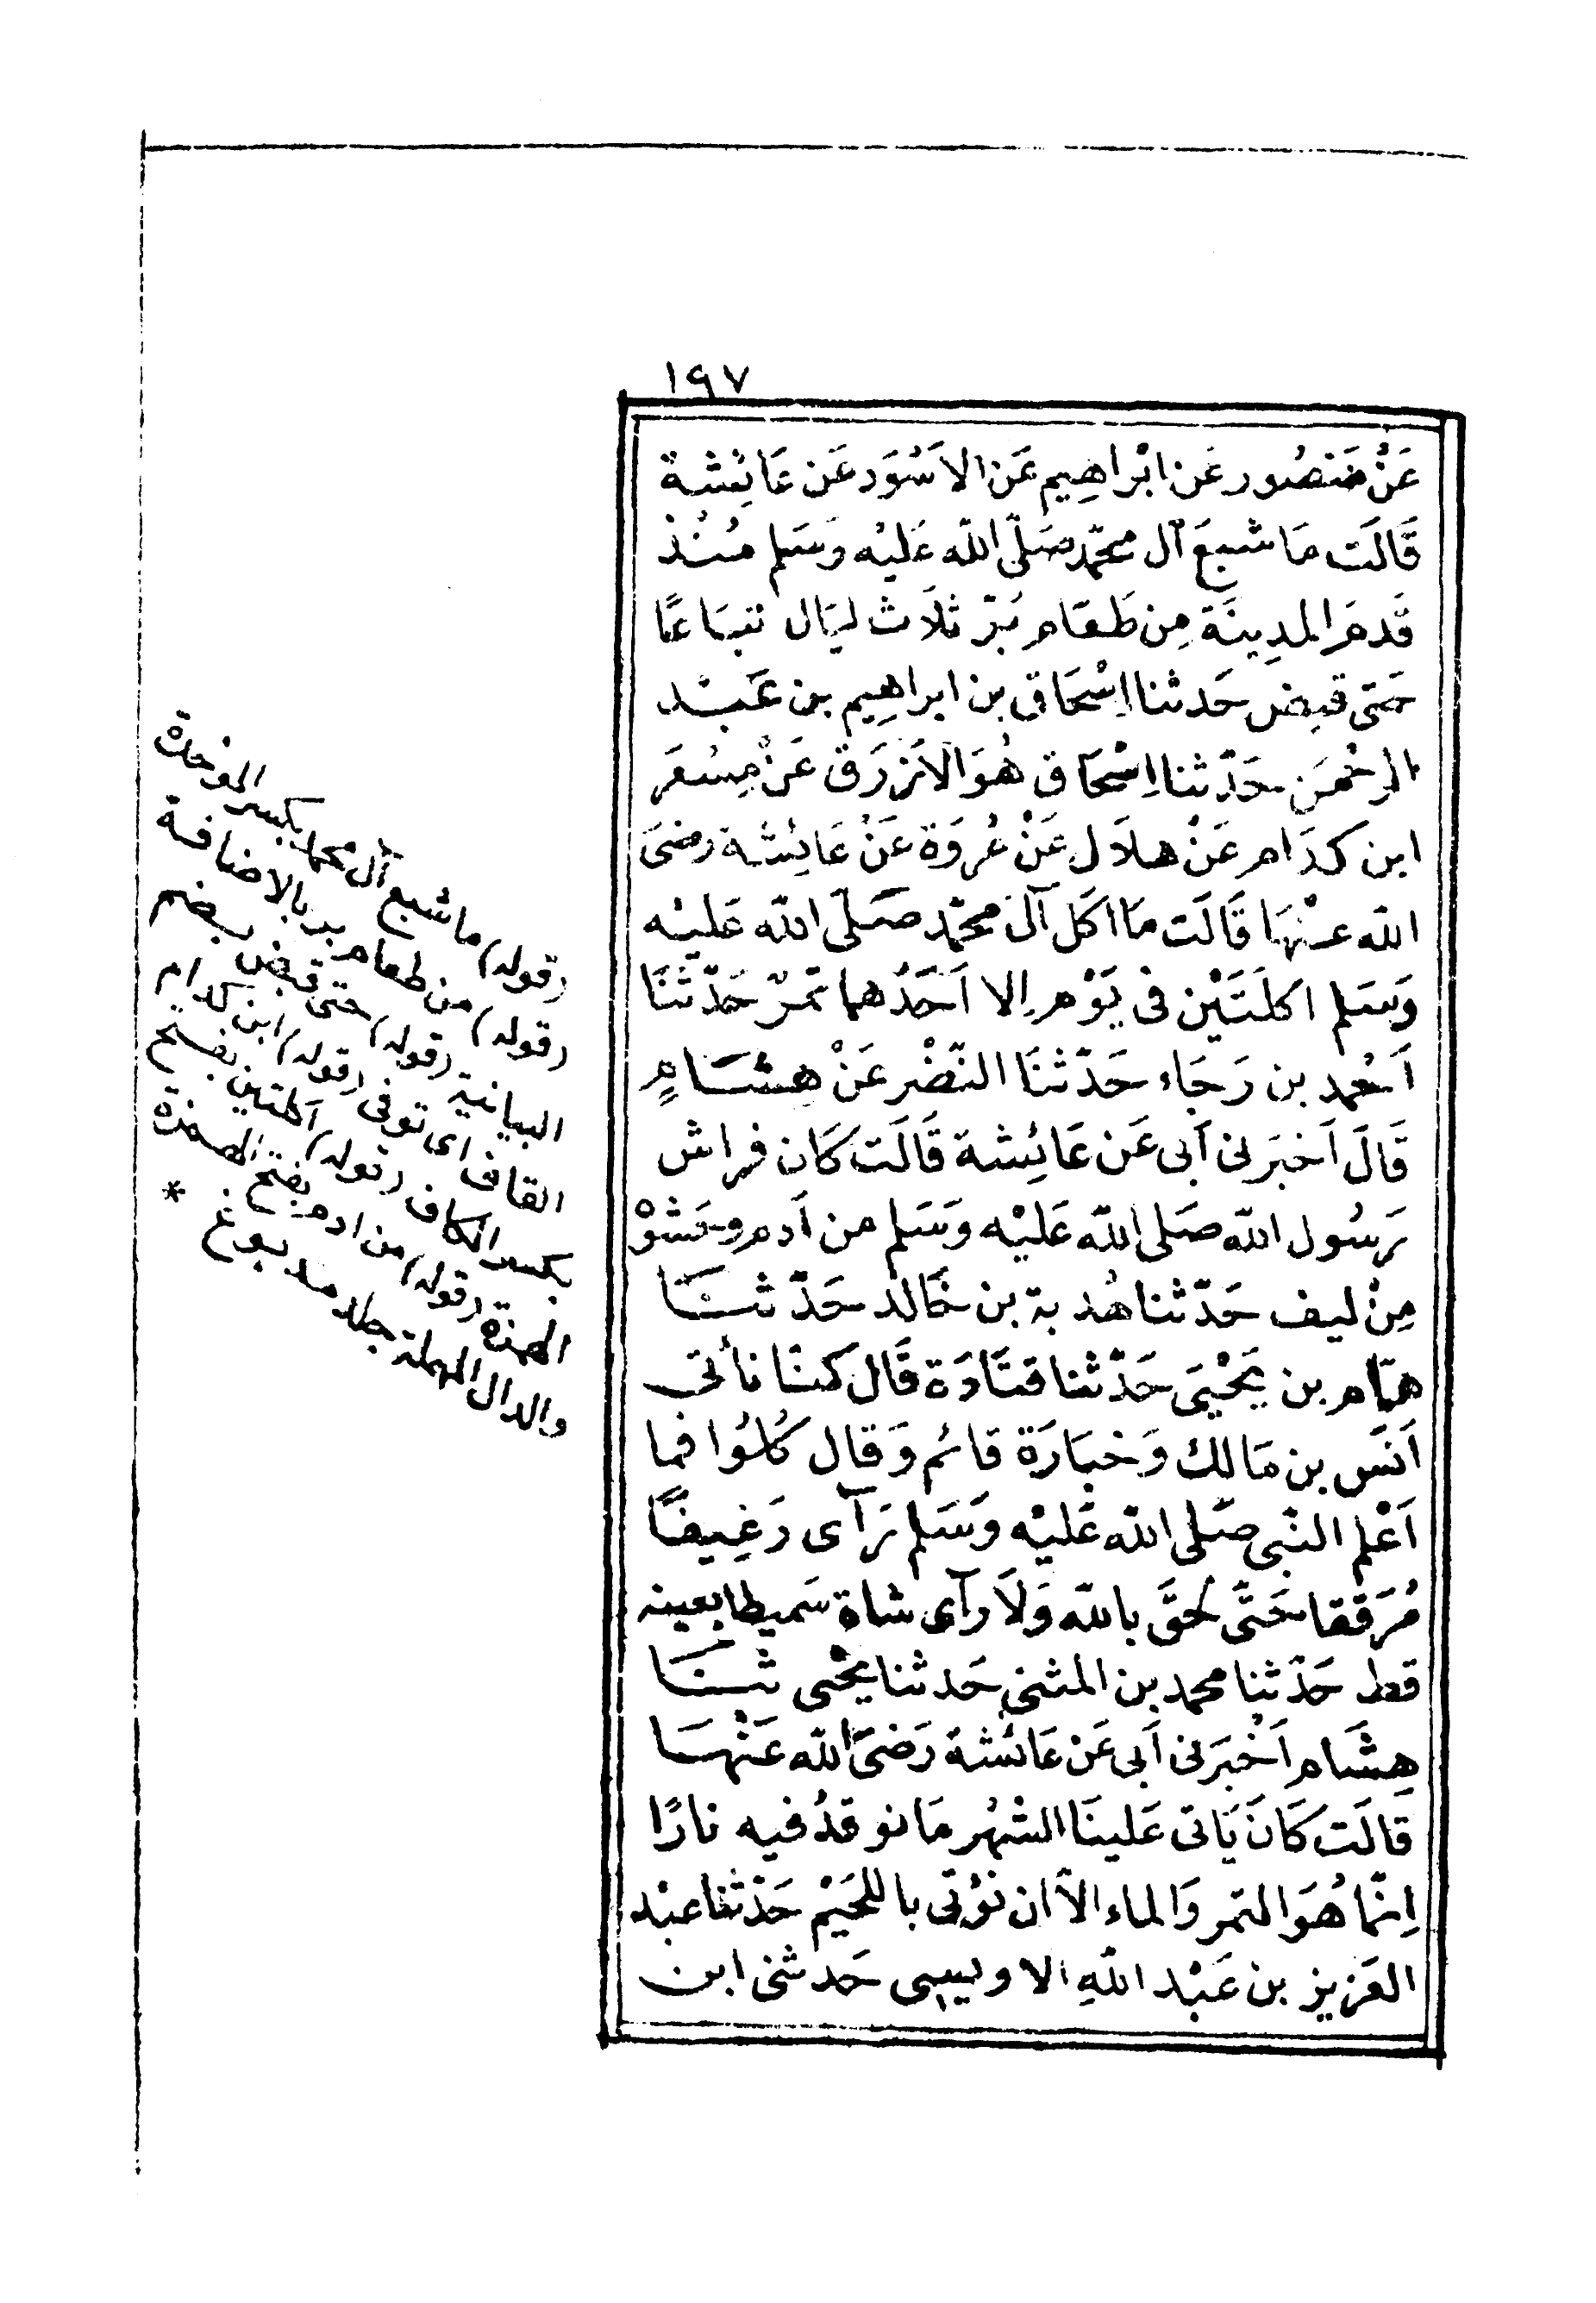 ١٩٧
عَنْ مَنْصُور عَن ابْراهِيم عَن الاَسْوَد عَن عَائِشة
قَالَت مَا شبعَ آل محمّد صَلّى الله عَليْه وَسَلم مُنْذ
قَدمَ المدِينَة مِن طَعَام بُرّ ثلَاث ليَال تبَاعًا
حَتى قبِض حَدثنا اِسْحَاق بن ابراهِيم بن عَبْد
الرحْمَن حَدّثنا اِسْحَاق هُوَ الاَزرَق عَنْ مِسْعَر
ابن كدَام عَنْ هلَال عَنْ عُروَة عَنْ عَائِشة رضىَ
الله عنْهَا قَالَت مَا اكَل آل محمّد صَلّى الله عَليْه
وَسَلم اكلَتَيْن فى يَوْم اِلا اَحَدُهما تمرٌ حَدّثنَا
اَحْمد بن رَجَاء حَدّثنَا النّضْر عَنْ هِشَامٍ
قَالَ اَخبَرنى اَبى عَن عَائِشة قَالَت كَان فراش
رَسُول الله صَلى اللهُ عَليْه وَسَلم من اَدم وحَشوْ
مِنْ ليف حَدّثنا هُدبة بن خَالد حَدّثنَا
همّام بن يَحْيَى حَدّثنا قتَادَة قَال كنّا نأتى
اَنَس بن مَالك وَخبَازَة قائم وَقال كُلُوا فما
اَعْلم النّبى صَلى الله عَليْه وَسَلم رَآى رَغِيفًا
مُرَققا حَتَّى لحقَ بالله وَلاَ رآى شاة سَميطا بعينه
قط حَدّثنا محمد بن المثنى حَدثنا يحْيى ثنَا
هِشَام اَخْبَرنى اَبى عَن عَائشة رَضىَ الله عَنْهَا
قالَت كَانَ يَاتى عَلينَا الشهْر مَا نوقدُ فيه نارًا
اِنّما هُوَ التمر وَالماء الاّ ان نؤتى باللحَيْم حَدّثنا عبْد
العَزيز بن عَبْد اللهِ الاويسِى حَدثنى ابن
(قوله) ما شبع آل محمد بكسر الموحدة
(قوله) من طعام بر بالاضافة
البيانية (قوله) حتى قبض بضم
القاف اى توفى (قوله) ابن كدام
بكسر الكاف (قوله) اكلتين بفتح
الهمزة (قوله) من ادم بفتح الهمزة
والدال المهملة جلد مدبوغ *